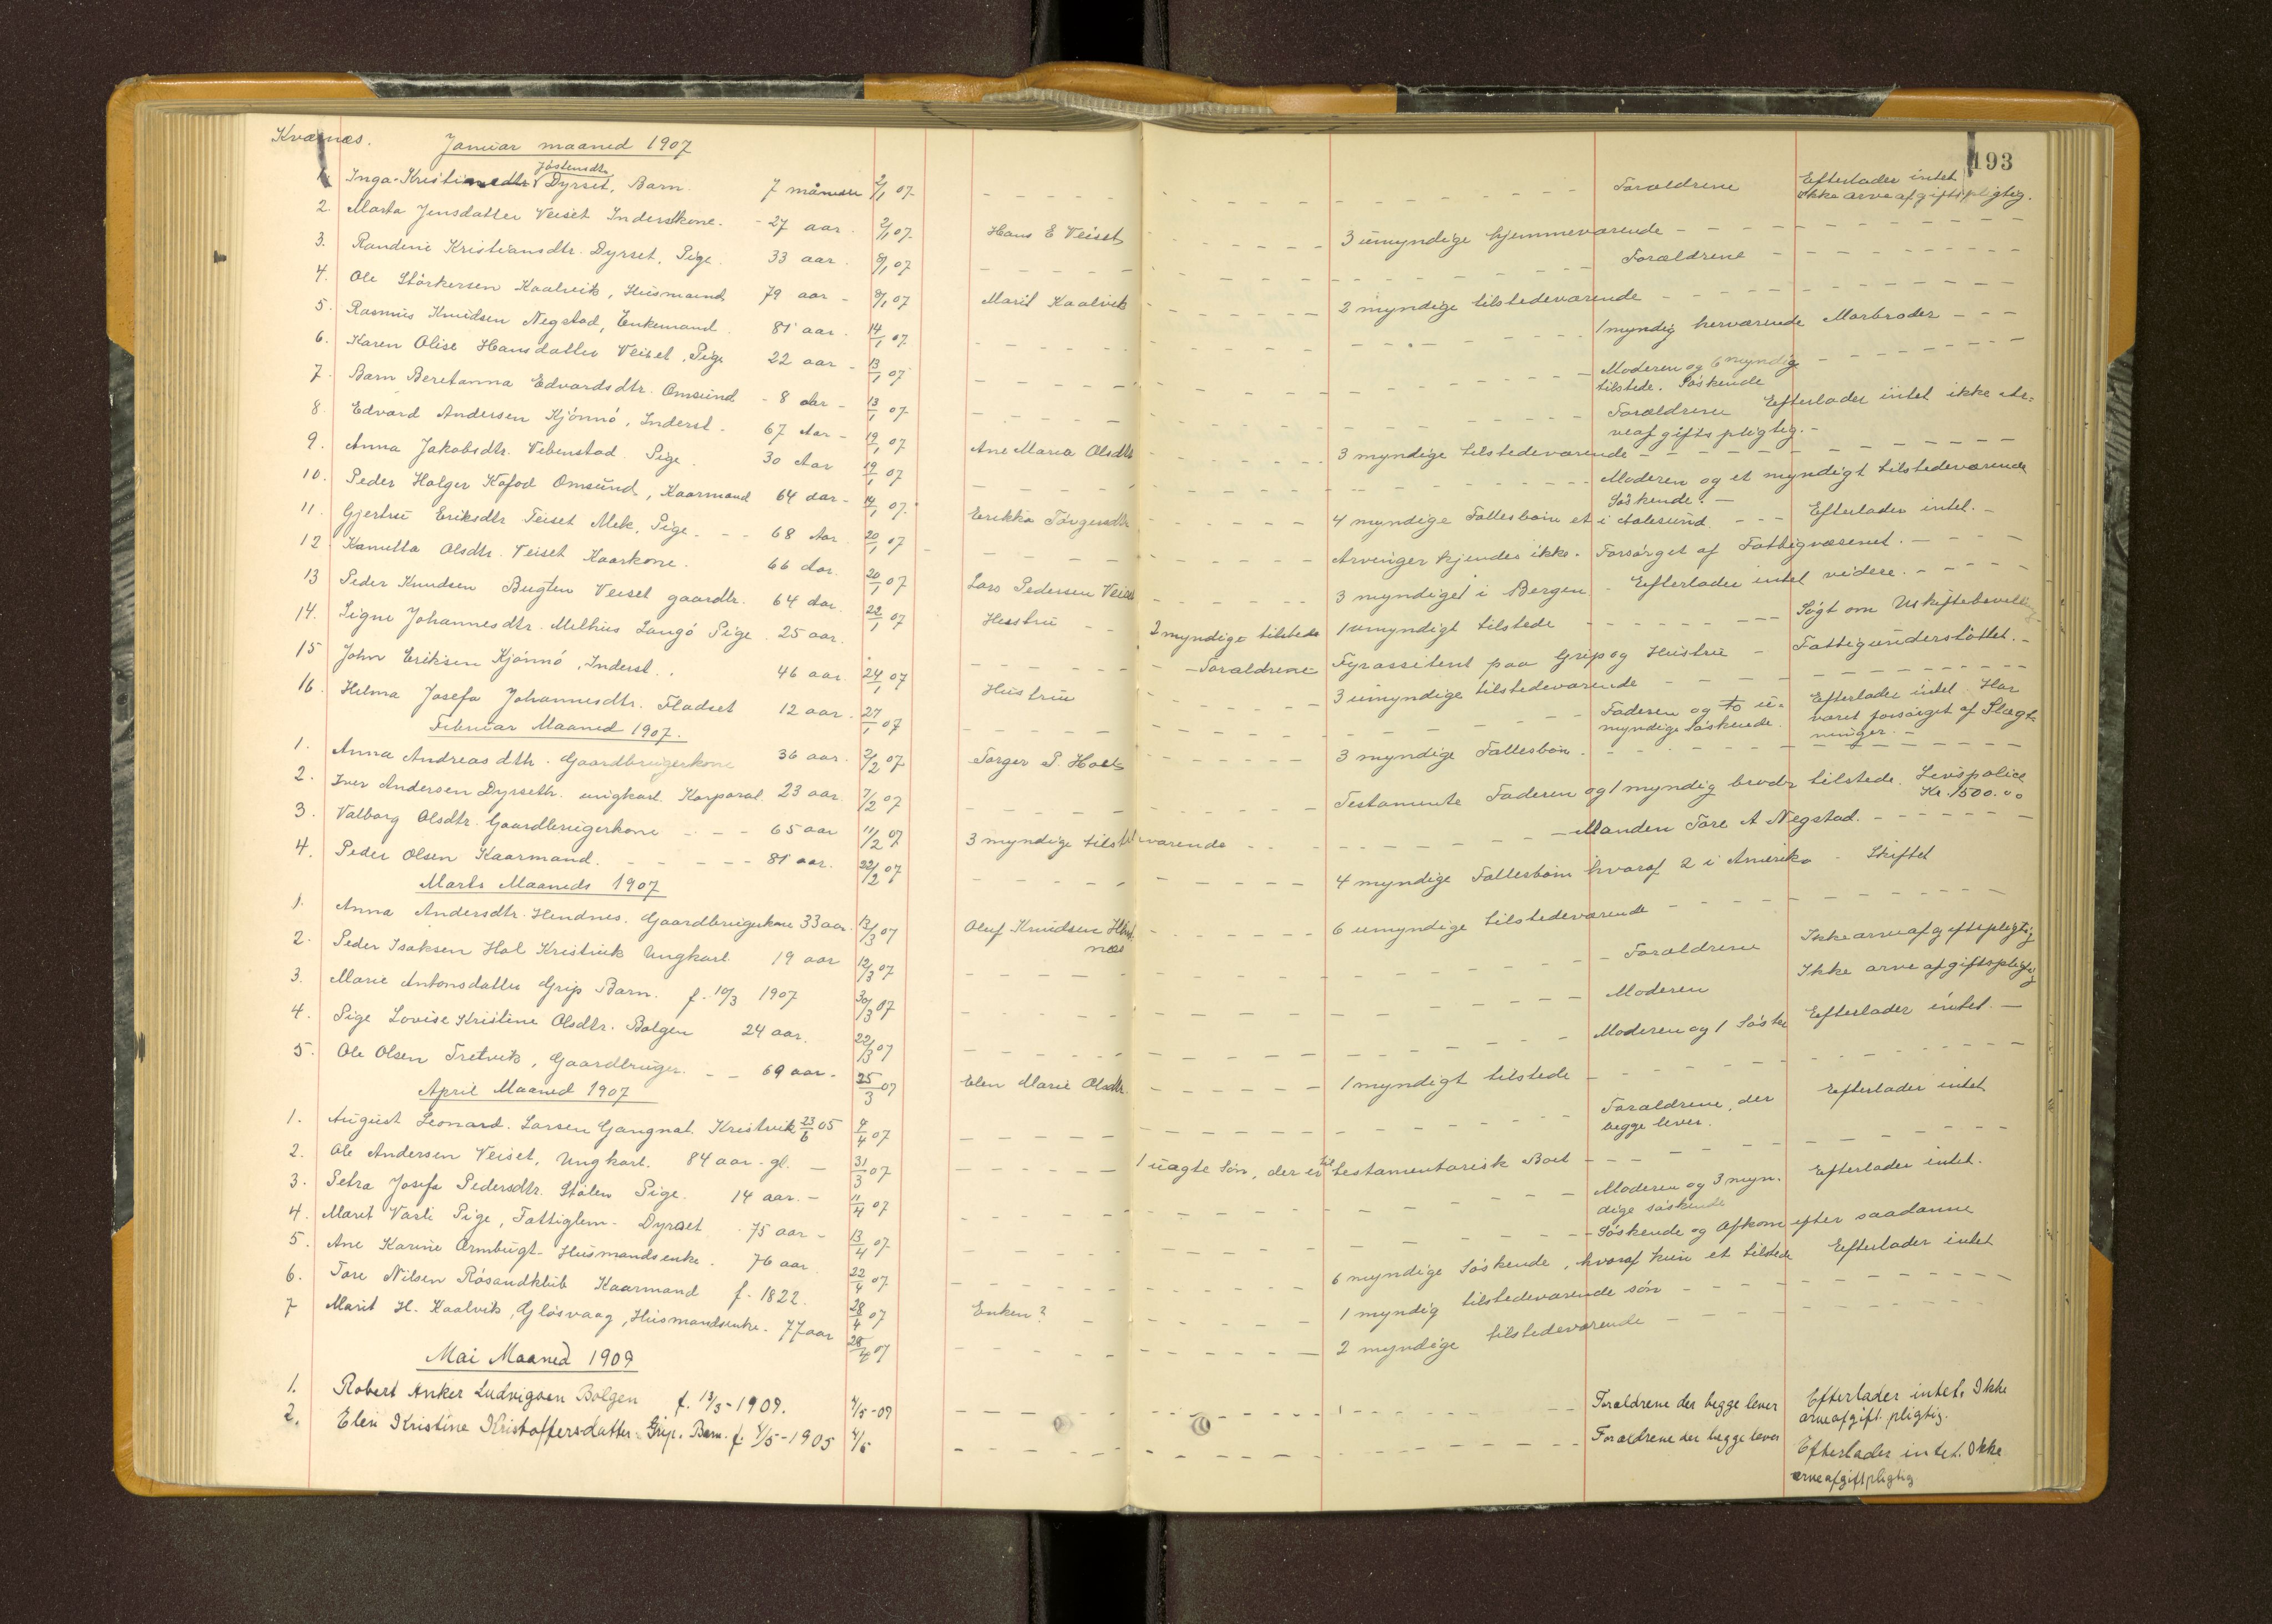 Kværnæs. Januar maaned 1907 193
Jöstensdtr.
1. Inga Kristi Dyrset, Barn. 7 måneder 2/1 07. Forældrene Efterlader intet ikke arveafgiftspligtig.
2. Marta Jensdatter Veiset Inderstkone. 27 aar. 2/1 07. Hans E Veiset 3 umyndige hjemmeværende
3. Randine Kristiansdtr. Dyrset, Pige. 33 aar. 8/1 07 Forældrene
4. Ole Störkersen Kaalvik, Husmand, 79 aar 9/1 07 Marit Kaalvik 2 myndige tilstedeværende
5. Rasmus Knudsen Negstad, Enkemand. 81 aar. 14/1 07. 1 myndig herværende Morbroder
6. Karen Olise Hansdatter Veiset, Pige 22 aar 13/1 07 Moderen og 6 myndig
tilstede. Söskende
7. Barn Beretanna Edvardsdtr. Omsund 8 Aar 13/1 07. Forældrene Efterlader intet ikke Ar=
veafgiftspligtig.
8. Edvard Andersen Kjönnö, Inderst. 67 Aar 19/1 07 Ane Maria Olsdtr 3 myndige tilstedeværende
9. Anna Jakobsdtr. Vebenstad Pige. 30 Aar 19/1 07 Moderen og et myndigt tilstedeværende
Söskende.
10. Peder Holger Kofod Omsund, Kaarmand 64 aar 14/1 07. Erikka Törgersdtr 4 myndige Fællesbörn et i Aalesund. Efterlader intet.
11. Gjertru Eriksdtr Teiset Mek, Pige. 68 Aar 20/1 07 Arvinger kjendes ikke. Forsörget af Fattigvæsenet.
12 Kanutta Olsdtr. Veiset Kaarkone. 66 Aar. 20/1 07 Lars Pedersen Veiset 3 myndiget i Bergen Efterlader intet videre.
13 Peder Knudsen Bugten Veiset gaardbr. 64 Aar. 22/1 07 Hustru 2 myndige tilstede 1 umyndigt tilstede Sögt om Uskiftebevilling
14. Signe Johannesdtr. Melhus Langö Pige. 25 aar. Forældrene Fyrassitent paa Grip og Hustru Fattigunderstöttet.
15 John Eriksen Kjönnö, Inderst. 46 aar. 24/1 07 Hustru 3 umyndige tilstedeværende
16. Hilma Josefa Johannesdtr. Fladset 12 aar. 27/1 07 Faderen og to u=
myndige söskende. Efterlader intet. Har
været forsörget af Slægt=
ninger.
Februar Maaned 1907.
1. Anna Andreasdtr. Gaardbrugerkone 36 aar. 2/2 07. Torger P. Holt 3 myndige Fællesbörn.
2. Iver Andersen Dyrseth. ungkarl. Korporal. 23 aar. 7/2 07 Testamente Faderen og 1 myndig broder tilstede. Livspolice
Kr. 1500.00
3. Valborg Olsdtr. Gaardbrugerkone 65 aar 11/2 07 3 myndige tilstedeværende Manden Tore A Negstad.
4. Peder Olsen Kaarmand. 81 aar. 22/2 07 4 myndige Fællesbörn hvoraf 2 i Amerika Skiftet
Marts Maaneds 1907
1. Anna Andersdtr. Hendnes. Gaardbrugerkone 33 aar. 13/3 07 Oluf Knudsen Hend-
næs 6 umyndige tilstedeværende
2. Peder Isaksen Hol Kristvik Ungkarl. 19 aar 12/3 07 Forældrene Ikke arveafgiftspligtig
3. Marie Antonsdatter Grip Barn. f. 10/3 1907 30/3 07 Moderen Ikke arveafgiftspligtig
4. Pige Lovise Kristine Olsdtr. Bolgen 24 aar. 22/3 07 Moderen og 1 Söske Efterlader intet.
5. Ole Olsen Tretvik, Gaardbruger. 69 aar. 25/3 07 Elen Marie Olsdtr. 1 myndigt tilstede
April Maaned 1907
1. August Leonard. Larsen Gangnat. Kristvik 23/6 05 4/4 07 Forældrene, der
begge lever. Efterlader intet
2. Ole Andersen Veiset, Ungkarl. 84 aar gl. 31/3 07 1 uægte Sön, der er til testamentarisk Boet
3. Petra Josefa Pedersdtr. Stölen Pige. 14 aar. 11/4 07 Moderen og 3 myn.
dige söskende Efterlader intet.
4. Marit Vasli Pige, Fattiglem. Dyrset 75 aar 13/4 07. Söskende og Afkom efter saadanne
5. Ane Karine Ormbugt. Husmandsenke. 76 aar 22/4 07 6 myndige Söskende, hvoraf kun et tilstede Efterlader intet
6. Tore Nilsen Rösandklub Kaarmand f. 1822. 28/4 07 Enken? 1 myndig tilstedeværende sön
7 Marit H. Kaalvik, Glösvaag, Husmandsenke. 77 aar 28/4 07 2 myndige tilstedeværende
Mai Maaned 1909
1. Robert Anker Ludvigsen Bolgen f. 13/3-1909. 4/5-09 Forældrene der begge lever Efterlader intet. Ikke
arveafgift. pligtig.
2. Elen Kristine Kristoffersdatter Grip. Barn. f. 4/5-1905 4/5 Forældrene der begge lever Efterlader intet. Ikke
arveafgiftpligtig